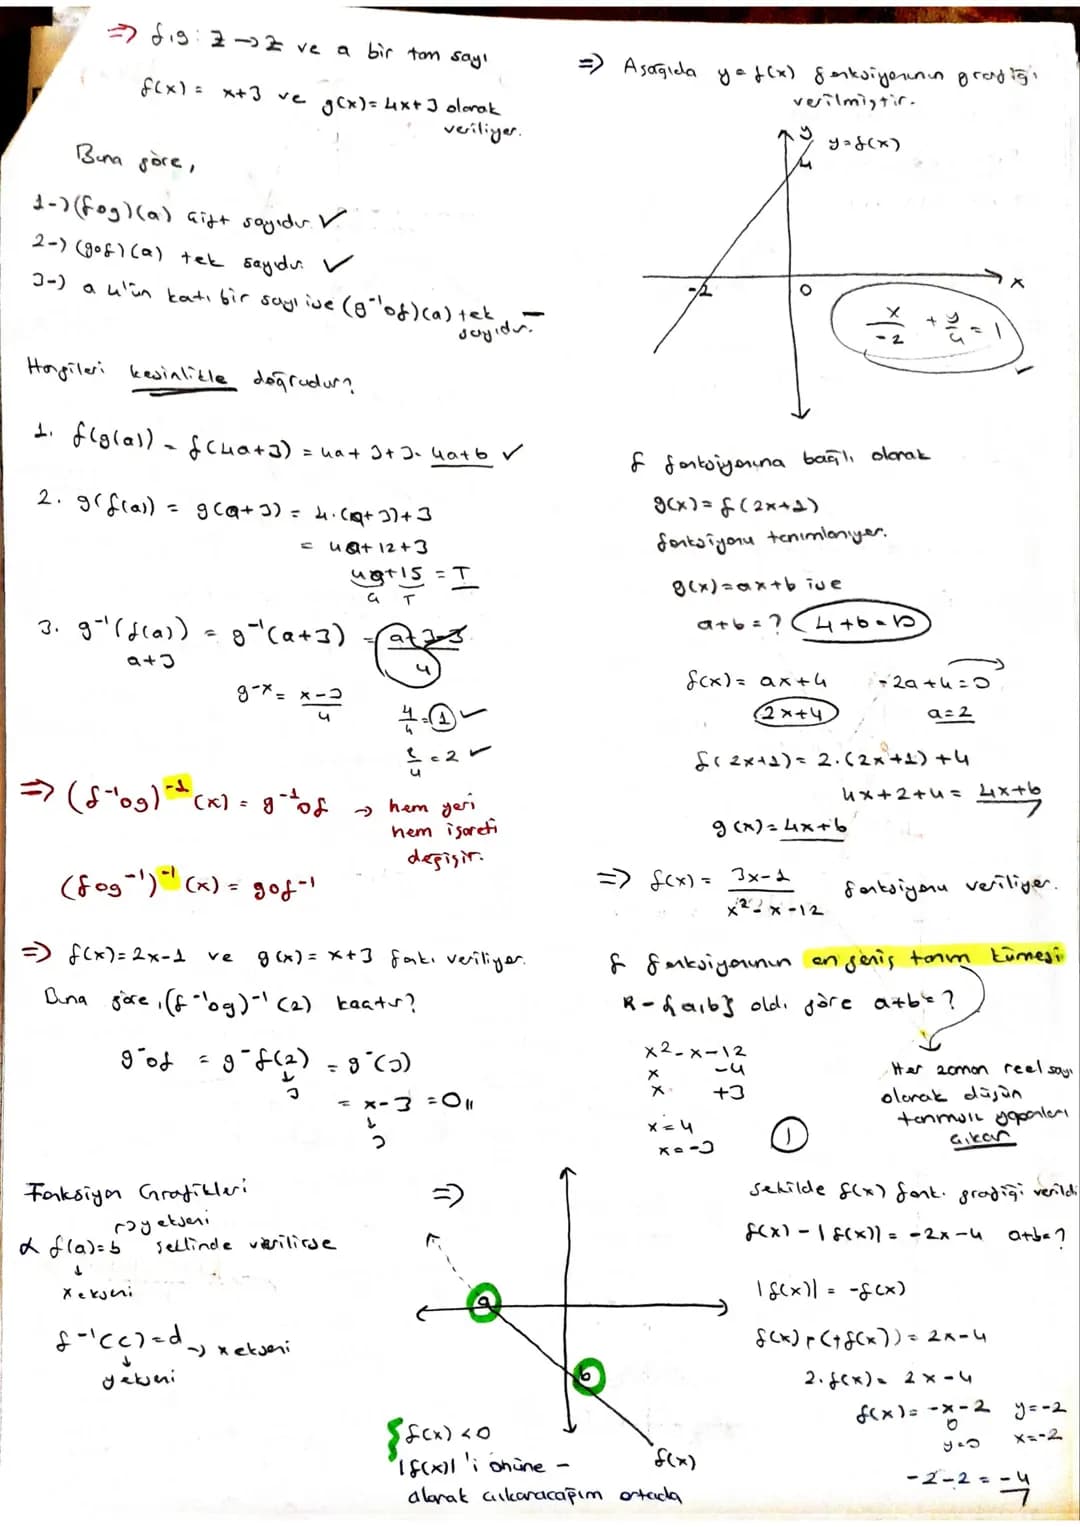 ⇒ f,g: Z → Z ve a bir tam sayı
f(x) = x+3 ve g(x) = 4x+3 olarak
veriliyor.
Buna göre,
1-) (fog)(a) çift sayıdır ✓
2-) (gof)(a) tek sayıdır. ✓
3-) a 4'ün katı bir sayı ise (g⁻¹of)(a) tek –
sayıdır.
Hangileri kesinlikle doğrudur?
1. f(g(a)) = f(4a+3) = 4a+3+3 = 4a+6 ✓
2. g(f(a)) = g(a+3) = 4.(a+3)+3
= 4a+12+3
4a+15 = T
Ç T
3. g⁻¹(f(a)) = g⁻¹(a+3) = a+3-3
a+3
4
g⁻x = x-3
4
4/4 = 1 ✓
8/4 = 2 ✓
⇒ (f⁻¹og)⁻¹(x) = g⁻¹of → hem yeri
hem işareti
değişir.
(fog⁻¹)⁻¹(x) = gof⁻¹
⇒ f(x) = 2x-1 ve g(x) = x+3 fonk. veriliyor.
Buna göre, (f⁻¹og)⁻¹(2) kaçtır?
g⁻of = g⁻f(2) = g⁻(3)
↓
3
= x-3 = 0//
↓
3
Fonksiyon Grafikleri
→ y ekseni
α f(a)=b şeklinde verilirse
↓
x ekseni
f⁻¹(c)=d → x ekseni
↓
y ekseni
⇒ Aşağıda y=f(x) fonksiyonunun grafiği
verilmiştir.
y
4
y=f(x)
-2
0
x
x/-2 + y/4 = 1
✓
f fonksiyonuna bağlı olarak
g(x) = f(2x+1)
fonksiyonu tanımlanıyor.
g(x)=ax+b ise
a+b=? 4+6=10
f(x) = ax+4 -2a+4=0
2x+4 a=2
f(2x+1) = 2.(2x+1)+4
4x+2+4 = 4x+6
g(x) = 4x+6
⇒ f(x) = 3x-1 fonksiyonu veriliyor.
x²-x-12
f fonksiyonunun en geniş tanım kümesi
R-{a,b} old. göre a+b=?
x²-x-12
x -4
x +3
x=4
x=-3
1
Her zaman reel sayı
olarak düşün
tanımsız yapanları
çıkar
⇒
a
b
f(x)
{ f(x)<0
|f(x)|'i önüne -
alarak çıkaracağım ortada
şekilde f(x) fonk. grafiği verildi
f(x) - |f(x)| = -2x-4 a+b=?
|f(x)| = -f(x)
f(x) + (+f(x)) = 2x-4
2.f(x) = 2x-4
f(x) = -x-2 y=-2
0
y=0 x=-2
-2-2 = -4